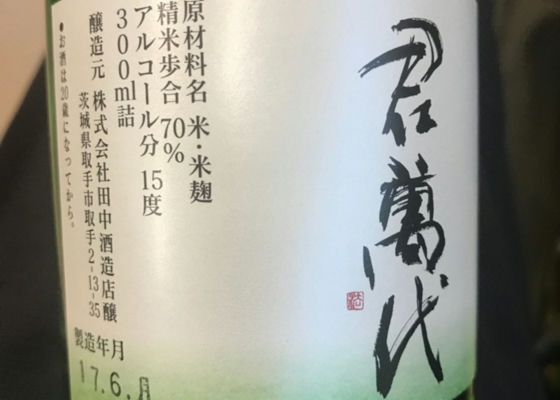 君萬代
原材料名 米・米麹
精米歩合 70%
アルコール分 15度
300ml詰
醸造元 株式会社田中酒造店醸
茨城県取手市取手2-13-35
●お酒は20歳になってから。
製造年月
17.6.月